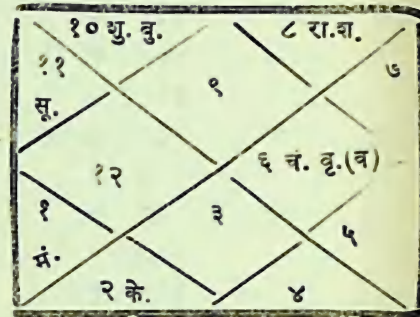 १० शु. बु.
८ रा.श.
११
७
सू.
९
१२
६ चं. वृ.(व)
१
३
५
मं.
२ के.
४